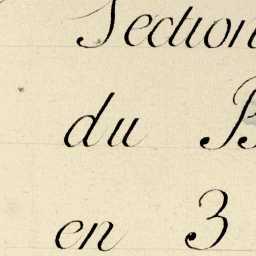 Section
du
en 3